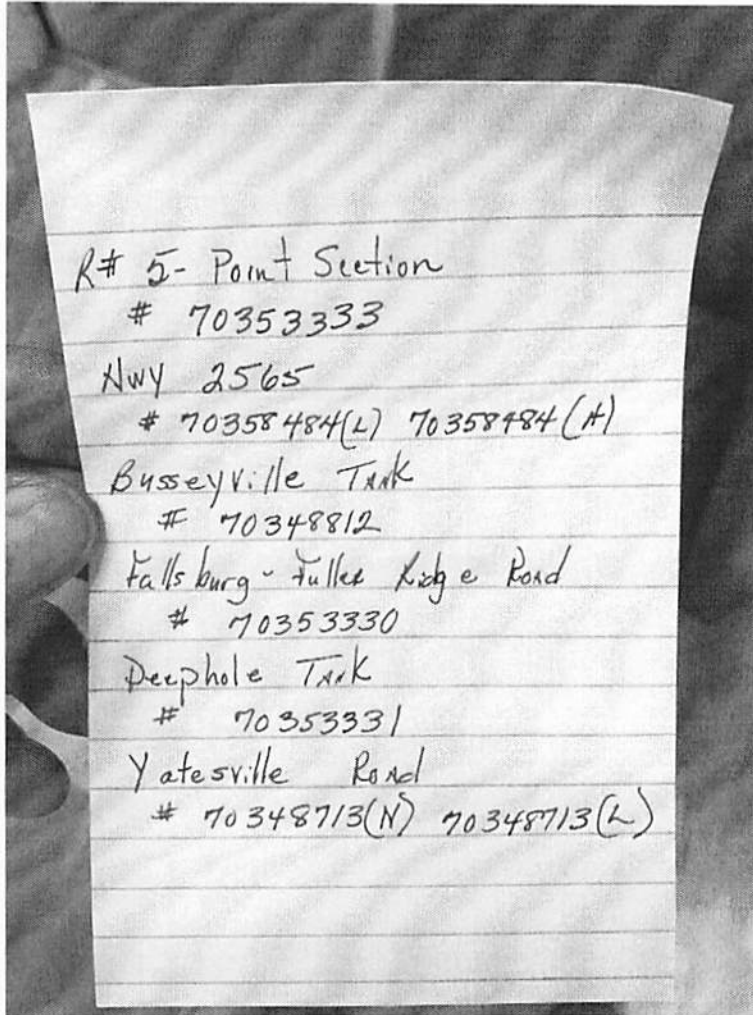 R# 5- Point Section
# 70353333
Hwy 2565
# 70358484(L) 70358484(H)
Busseyville Tank
# 70348812
Fallsburg - Fuller Ridge Road
# 70353330
Deephole Tank
# 70353331
Yatesville Road
# 70348713(H) 70348713(L)